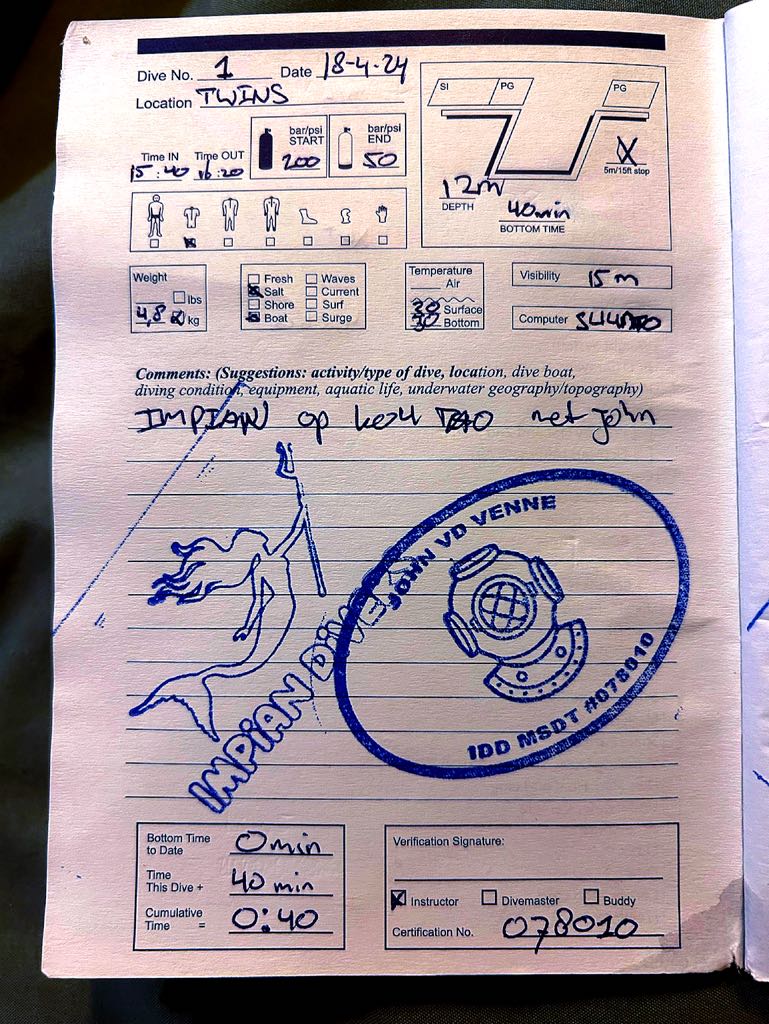 Dive No. 1 Date 18-4-24
Location TWINS
SI PG PG
bar/psi START 200
bar/psi END 50
Time IN 15:40 Time OUT 16:20
5m/15ft stop
12m DEPTH
40min BOTTOM TIME
Weight
lbs
4,8 kg
Fresh Waves
Salt Current
Shore Surf
Boat Surge
Temperature
Air
30 Surface
30 Bottom
Visibility 15m
Computer SUUNTO
Comments: (Suggestions: activity/type of dive, location, dive boat,
diving condition, equipment, aquatic life, underwater geography/topography)
IMPIAN op koh TAO met John
IMPIAN DIVERS
JOHN VD VENNE
IDD MSDT #078010
Bottom Time to Date 0min
Time This Dive + 40 min
Cumulative Time = 0:40
Verification Signature:
Instructor Divemaster Buddy
Certification No. 078010